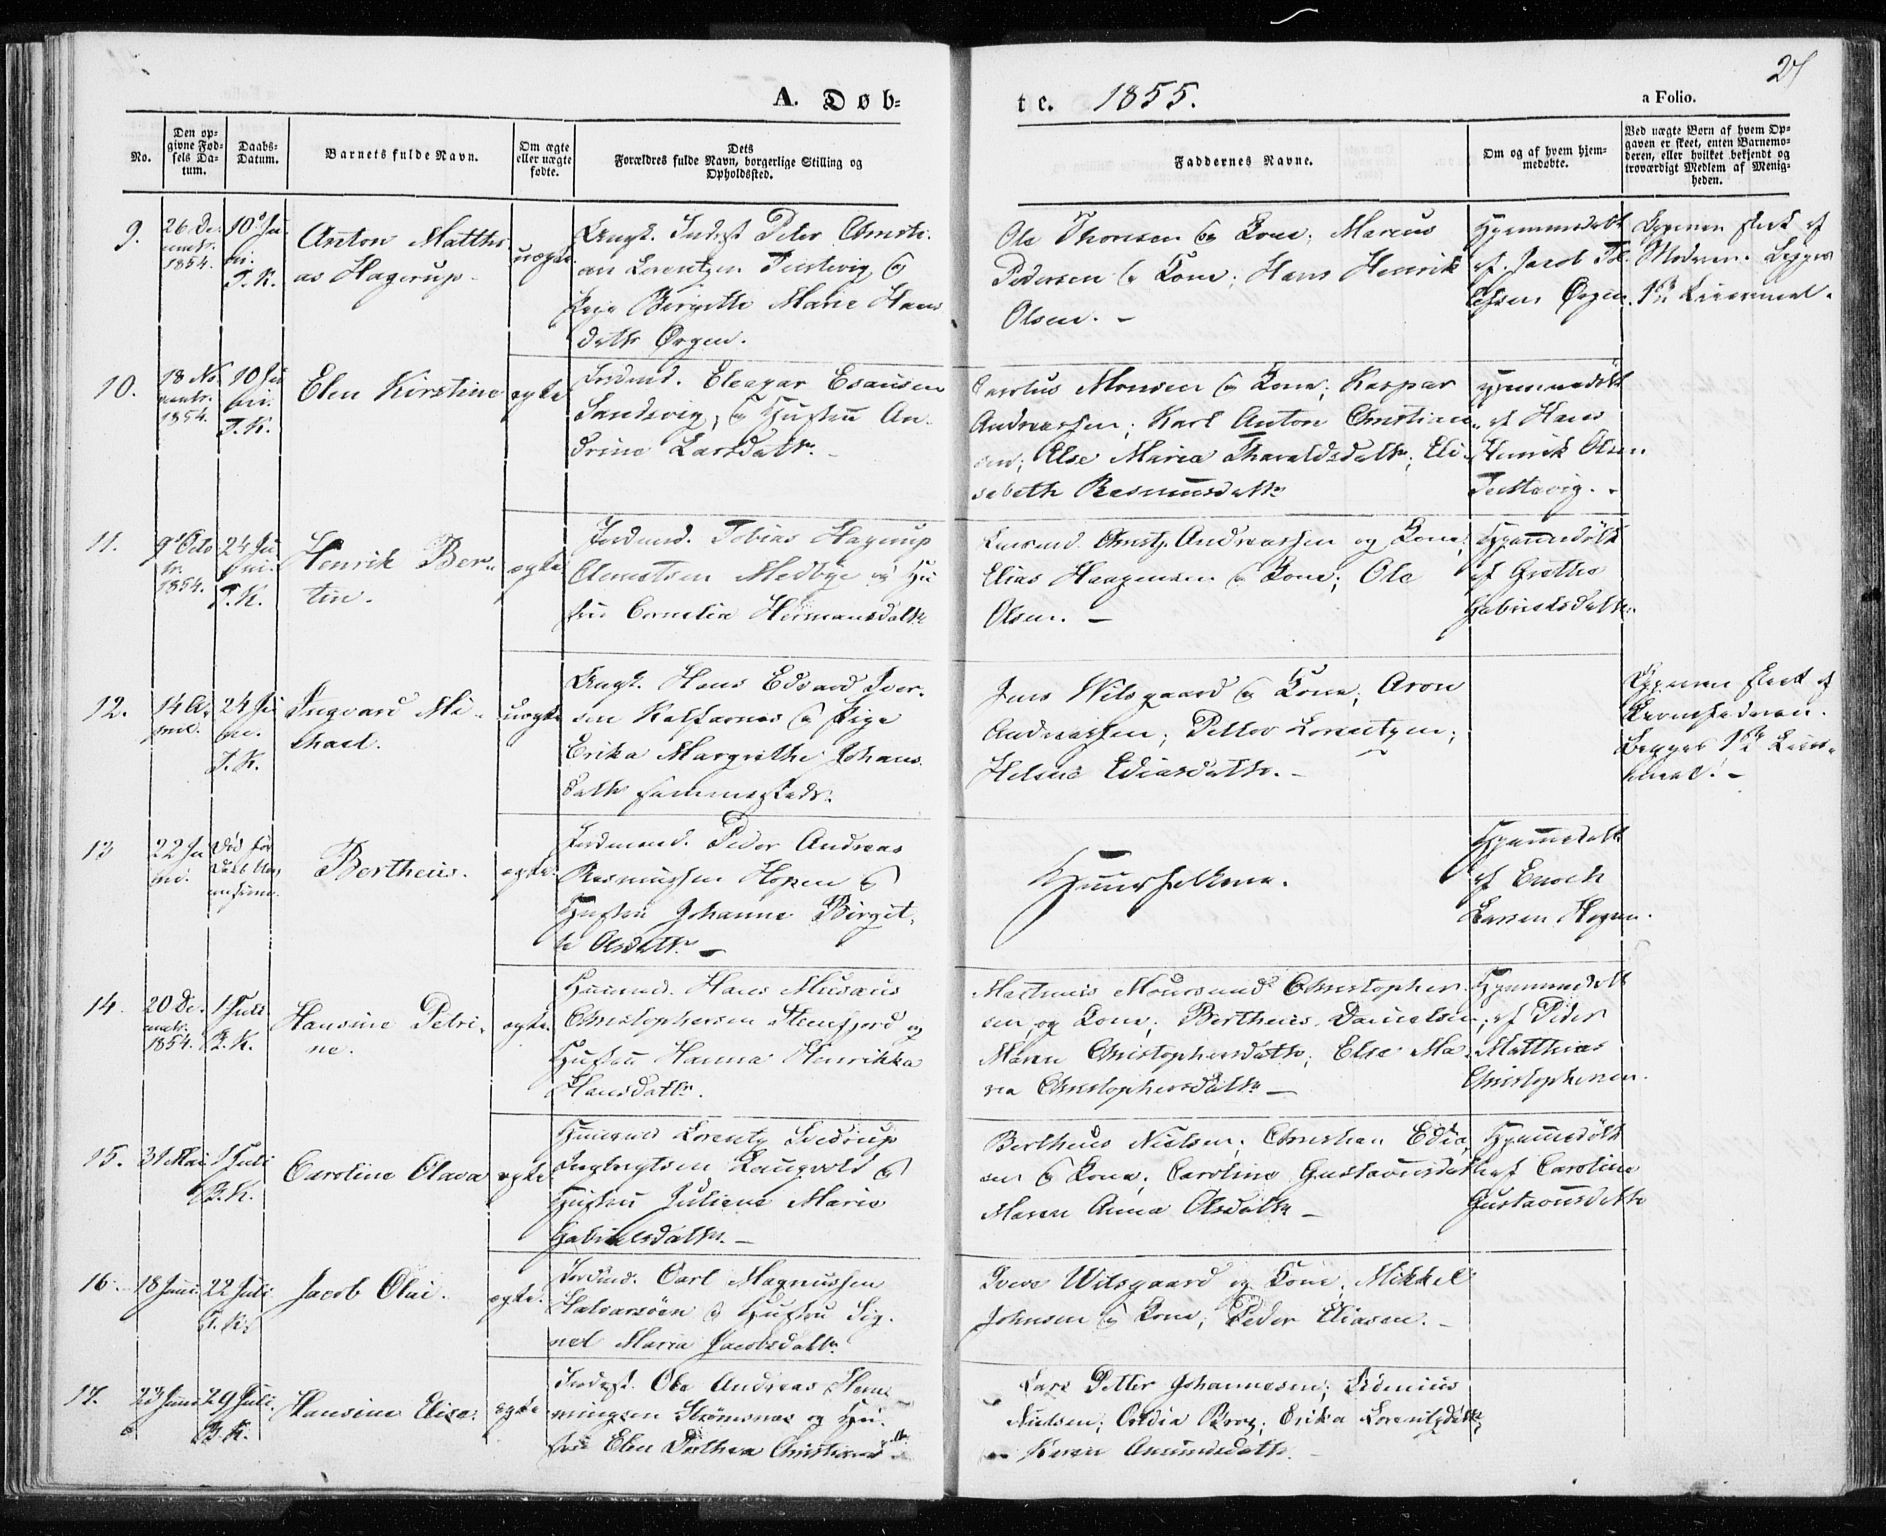 27
A. Døb-
te. 1855.
a Folio.
No.
Den op-
givne Fød-
sels Da-
tum.
Daabs-
Datum.
Barnets fulde Navn.
Om ægte
eller uægte
fødte.
Dets
Forældres fulde Navn, borgerlige Stilling og
Opholdssted.
Faddernes Navne.
Om og af hvem hjem-
medøbte.
Ved uægte Børn af hvem Op-
gaven er skeet, enten Barnemo-
deren, eller hvilket bekjendt og
troværdigt Medlem af Menig-
heden.
9.
26 De-
cembr.
1854.
10de Ju-
ni.
T. K.
Anton Matthi-
as Hagerup.
uægte
Ungk. Inderst Peter Christi-
an Lorentzen Teistevig og
Pige Birgitte Marie Hans
datter Øxgen.
Ole Thoresen og Kone; Marcus
Pedersen og Kone; Hans Henrik
Olsen. –
Hjemmedøbt
af Jacob
Øxgen.
Opgaven skeet af
Moderen. Begges
1ste Leiermaal.
10.
18 No-
vembr.
1854.
10 Ju-
ni.
T. K.
Elen Kirstine
egte
Jordmd. Eleazar Esausen
Sandsvig, og Hustru An-
drine Larsdatter. –
Carolus Monsen og Kone; Kaspar
Andreassen; Karl Anton Christian-
sen; Else Maria Tharaldsdatter; Eli-
sabeth Rasmusdatter
Hjemmedøbt
af Hans
Henrik Olsen
Teistevig. –
11.
9de Octo-
br.
1854.
24 Ju-
ni.
T. K.
Henrik Ber-
tin.
egte
Jordmd. Tobias Hagerup
Clemetsen Medbye og Hu-
stru Cornelia Heimansdatter
Huusmd. Christ. Andreassen og Kone;
Elias Haagensen og Kone; Ole
Olsen. –
Hjemmedøbt
af Grethe
Gabrielsdatter.
12.
14 A-
pril.
24 Ju-
ni.
T. K.
Ingvard Mi-
chael.
uægte
Ungk. Hans Edvard Iver-
sen Kalfarnes og Pige
Erika Margrethe Johans
datter sammesteds.
Jens Wilsgaard og Kone; Aron
Andreassen; Petter Lorentzen;
Helene Ediasdatter. –
Opgaven skeet af
Barnefaderen.
Begges 1ste Leier-
maal. –
13
22 Ju-
ni.
Død før
Bertheus.
egte.
Jordmand. Peder Andreas
Rasmussen Hopen og
Hustru Johanne Birgit-
te Olsdatter. –
Huusfolkene.
Hjemmedøbt
af Enoch
Larsen Hopen.
14.
20 De-
cembr.
1854.
1 Juli
B. K.
Hansine Petri-
ne.
egte.
Huusmd. Hans Musæus
Christophersen Steenfjord og
Hustru Hanna Henrikka
Hansdatter.
Martinus Moursund Christopher-
sen og Kone; Bertheus Danielsen;
Maren Christophersdatter; Else Ma-
ria Christophersdatter –
Hjemmedøbt
af Peder
Matthias
Christophersen.
15.
31 Mai
1 Juli
B. K.
Caroline Olava
egte
Huusmd Lorentz Svedrup
Ingbrigtsen Laugvold og
Hustru Juliane Marie
Gabrielsdatter. –
Bertheus Nielsen; Christian Edia-
sen og Kone; Caroline Gustavusdatter
Maren Anna Olsdatter –
Hjemmedøbt
af Caroline
Gustavusdatter
16.
18 Juni
22 Juli
T. K.
Jacob Olai.
egte.
Jordmd. Carl Magnussen
Halvarsøen og Hustru Sig-
nel Maria Jacobsdatter.
Iver Wilsgaard og Kone; Mikkel
Johnsen og Kone; Peder Eliasen. –
17.
23 Juni
29 Juli.
B. K.
Hansine Elise.
egte
Inderst. Ole Andreas Hem-
mingsen Strømsnes og Hu-
stru Elen Dorthea Christians-
Lars Petter Johannesen;
Nielsen; Ordia Brox; Erika Lorentzdatter
Karen Amundsdatter. –